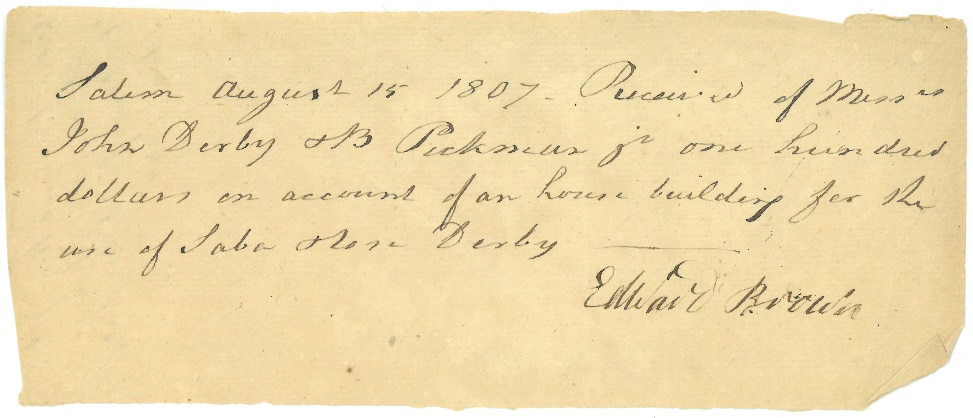 Salem August 15 1807 - Received of Messrs
John Derby & B Pickman jr one hundred
dollars on account of an house building for the
use of Saba & Rose Derby
Edward Brown